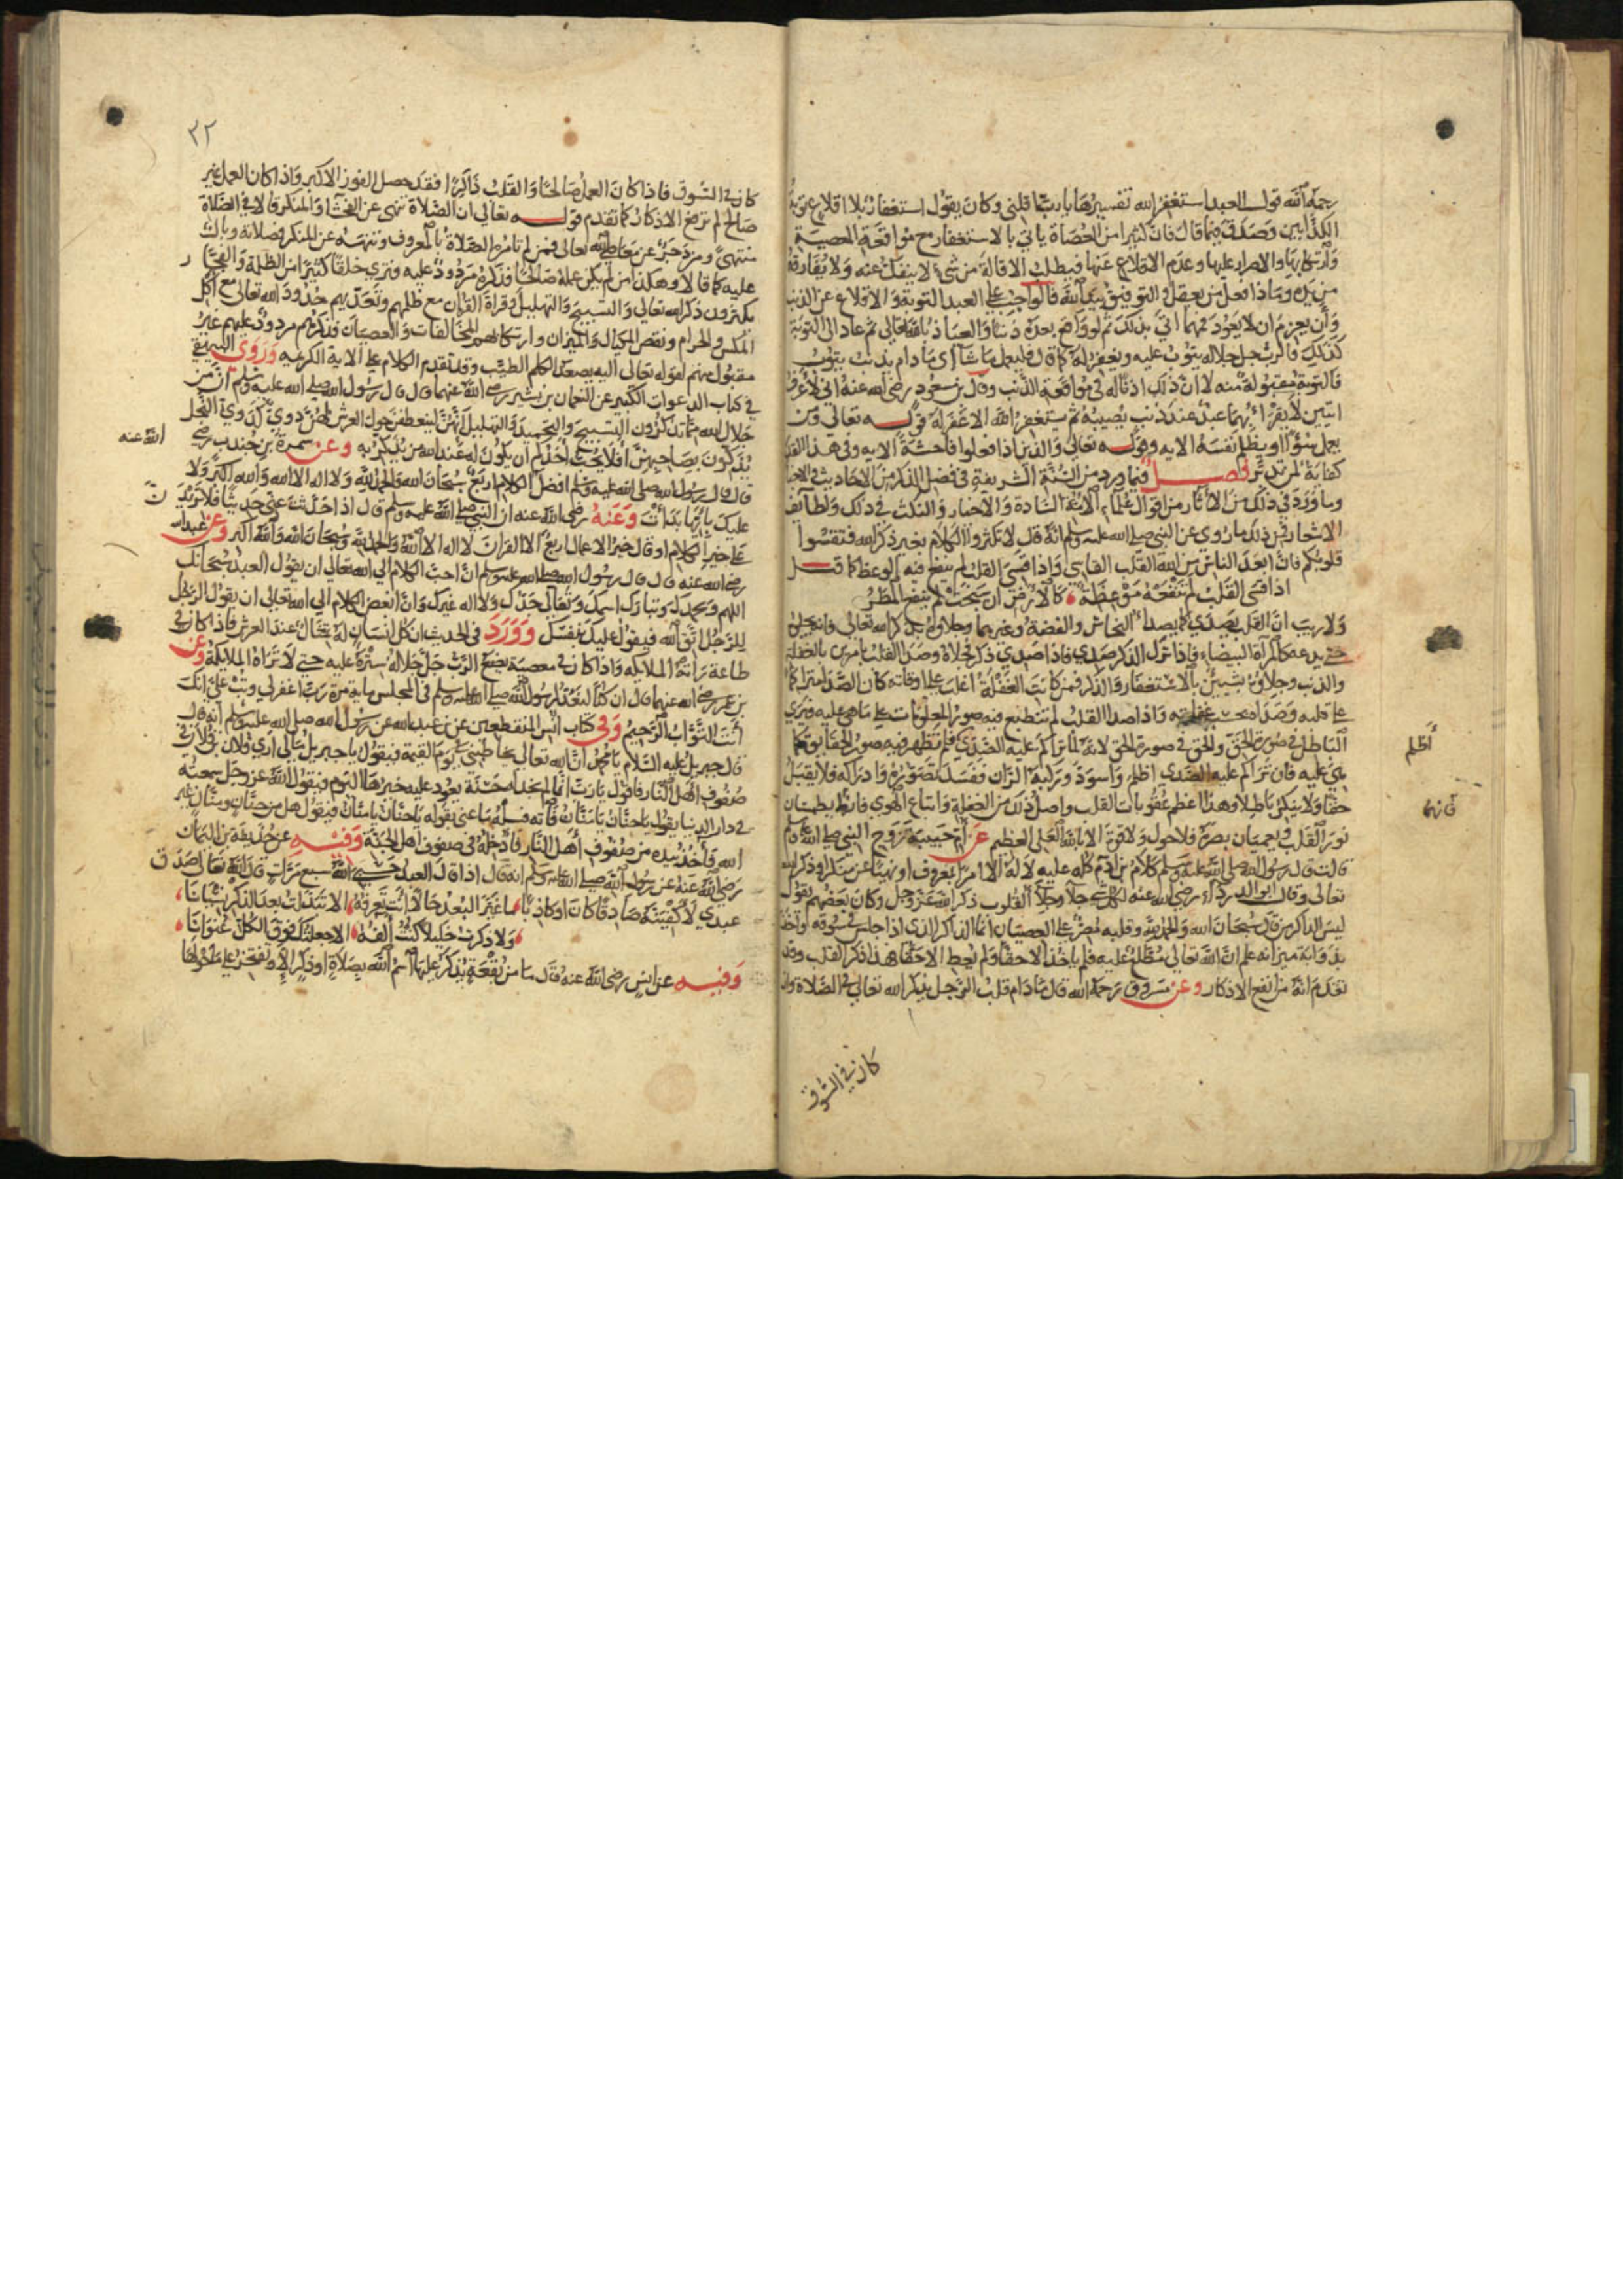 رحمه الله قول العبد استغفر الله تفسيرها يا رب اقلني وكان يقول استغفار بلا اقلاع توبة
الكذابين وصدق فيما قال فان كثيرا من العصاة ياتي بالاستغفار مع مواقعة المعصية
وارتكابها والاصرار عليها وعدم الاقلاع عنها فيطلب الاقالة من شيء لا ينفك عنه ولا يفارقه
من يده وماذا فعل من يعقل والتوفيق بيد الله فالواجب على العبد التوبة والاقلاع عن الذنب
وان يعزم ان لا يعود فمهما اتى بذلك ثم لو واقع بعده ذنبا والعياذ بالله تعالى ثم عاد الى التوبة
كذلك فالرب جل جلاله يتوب عليه ويغفر له كما قال فليعمل ما شاء اي ما دام يذنب يتوب
فالتوبة مقبولة منه لا ان ذلك اذن له في مواقعة الذنب وقال بن مسعود رضي الله عنه اني لاعرف
ايتين لا يقرأ بهما عبد عند ذنب يصيبه ثم يستغفر الله الا غفر له قوله تعالى ومن
يعمل سوءا او يظلم نفسه الايه وقوله تعالى والذين اذا فعلوا فاحشة الايه وفي هذا القدر
كفاية لمن تدبر فصل فيما ورد من السنة الشريفة في فضل الذكر من الاحاديث والاخبار
وما ورد في ذلك من الاثار من اقوال علماء الائمة السادة والاخبار والنكت في ذلك ولطايف
الاشعار فمن ذلك ما روي عن النبي صلى الله عليه وسلم انه قال لا تكثروا الكلام بغير ذكر الله فتقسوا
قلوبكم فان ابعد الناس من الله القلب القاسي واذا قسى القلب لم ينفع فيه الوعظ كما قيل
اذا قسى القلب لم تنفعه موعظة كالارض ان سبخت لم ينفع المطر
ولا ريب ان القلب يصدي كما يصدأ النحاس والفضة وغيرهما وجلاوه بذكر الله تعالى فانه يجلوه
حتى يدعه كالمرآة البيضاء فاذا ترك الذكر صدي فاذا صدي ذكر فجلاه وصدا القلب بامرين بالغفلة
والذنب وجلاوه بشيئين بالاستغفار والذكر فمن كانت الغفلة اغلب على اوقاته كان الصدا متراكما
على قلبه وصداه بحسب غفلته واذا صدا القلب لم تنطبع فيه صور المعلومات على ما هي عليه فيرى
الباطل في صورة الحق والحق في صورة الحق لانه لما تراكم عليه الصدي فلم تظهر فيه صور الحقايق كما
هي عليه فان تراكم عليه الصدي اظلم واسود وركبه الران ففسد تصوره وادراكه فلا يقبل
حقا ولا ينكر باطلا وهذا اعظم عقوبات القلب واصل ذلك من الغفلة واتباع الهوى فانهما يطمسان
نور القلب ويعميان بصره فلا حول ولا قوة الا بالله العلي العظيم عن ام حبيبة زوج النبي صلى الله عليه وسلم
قالت قال رسول الله صلى الله عليه وسلم كلام بن ادم كله عليه لا له الا امرا بمعروف او نهيا عن منكر او ذكر الله
تعالى وقال ابو الدرداء رضي الله عنه لكل شيء جلا وجلا القلوب ذكر الله عز وجل وكان بعضهم يقول
ليس الذاكر من قال سبحان الله والحمد لله وقلبه مصر على العصيان انما الذاكر الذي اذا جلس في سوقه واخذ
بذوابة ميزانه علم ان الله تعالى مطلع عليه فلم ياخذ الا حقا ولم يعط الا حقا هذا ذكر القلب وقد
تقدم انه من انفع الاذكار وعن مسروق رحمه الله قال ما دام قلب الرجل يذكر الله تعالى في الصلاة وان
كان في السوق
اظلم
فانهما
٢٢
كان في السوق فاذا كان العمل صالحا والقلب ذاكرا فقد حصل الفوز الاكبر واذا كان العمل غير
صالح لم ترفع الاذكار كما تقدم قوله تعالى ان الصلاة تنهى عن الفحشاء والمنكر قالا في الصلاة
منتهى ومزدجر عن معاصي الله تعالى فمن لم تامره الصلاة بالمعروف وتنهه عن المنكر فصلاته وبال
عليه كما قالا وهكذا من لم يكن عمله صالحا فذكره مردود عليه وترى خلقا كثيرا من الظلمة والفجار
يكثرون ذكر الله تعالى والتسبيح والتهليل وقراة القران مع ظلمهم وتعديهم حدود الله تعالى مع اكل
المكس والحرام ونقص المكيال والميزان وارتكابهم المخالفات والعصيان فذكرهم مردود عليهم غير
مقبول منهم لقوله تعالى اليه يصعد الكلم الطيب وقد تقدم الكلام على الاية الكريمه وروى البيهقي
في كتاب الدعوات الكبير عن النعمان بن بشير رضي الله عنهما قال قال رسول الله صلى الله عليه وسلم ان من
جلال الله مما تذكرون التسبيح والتحميد والتهليل انهن لينعطفن حول العرش لهن دوي كدوي النحل
يذكرن بصاحبهن افلا يحب احدكم ان يكون له عند الله من يذكر به وعن سمرة بن جندب رضي
الله عنه
قال قال رسول الله صلى الله عليه وسلم افضل الكلام اربع سبحان الله والحمد لله ولا اله الا الله والله اكبر ولا
عليك بايها بدات وعنه رضي الله عنه ان النبي صلى الله عليه وسلم قال اذا حدثت عني حديثا فلا تزيدن
على خير الكلام او قال خير الاعمال اربع الا القران لا اله الا الله والحمد لله وسبحان الله والله اكبر وعن عبد الله
رضي الله عنه قال قال رسول الله صلى الله عليه وسلم ان احب الكلام الى الله تعالى ان يقول العبد سبحانك
اللهم وبحمدك وتبارك اسمك وتعالى جدك ولا اله غيرك وان ابغض الكلام الى الله تعالى ان يقول الرجل
للرجل اتق الله فيقول عليك نفسك وورد في الحديث ان كل انسان له تمثال عند العرش فاذا كان في
طاعة راته الملايكه واذا كان في معصية يضع الرب جل جلاله سترة عليه حتى لا تراه الملايكة وعن
بن عمر رضي الله عنهما قال ان كنا لنعد لرسول الله صلى الله عليه وسلم في المجلس ماية مرة رب اغفر لي وتب علي انك
انت التواب الرحيم وفي كتاب انس المنقطعين عن بن عبد الله عن رسول الله صلى الله عليه وسلم انه قال
قال جبريل عليه السلام يا محمد ان الله تعالى يخاطبني يوم القيمة فيقول يا جبريل مالي ارى فلان بن فلان في
صفوف اهل النار فاقول يا رب انا لم نجد له حسنة يعود عليه خيرها اليوم فيقول الله عز وجل سمعته
في دار الدنيا يقول يا حنان يا منان فاته فسله ما عنى بقوله يا حنان يا منان فيقول هل من حنان ومنان غير
الله فآخذ بيده من صفوف اهل النار فادخله في صفوف اهل الجنة وفيه عن حذيفة بن اليمان
رضي الله عنه عن رسول الله صلى الله عليه وسلم انه قال اذا قال العبد حسبي الله سبع مرات قال الله تعالى صدق
عبدي لاكفينه صادقا كان او كاذبا ما غير البعد حالا انت تعرفه الا تبدلت بعد الذكر نسيانا
ولا ذكرت خليلا كنت آلفه الا جعلتك فوق الكل عنوانا
وفيه عن انس رضي الله عنه قال ما من بقعة يذكر عليها اسم الله بصلاة او ذكر الا وتفخر على ما حولها